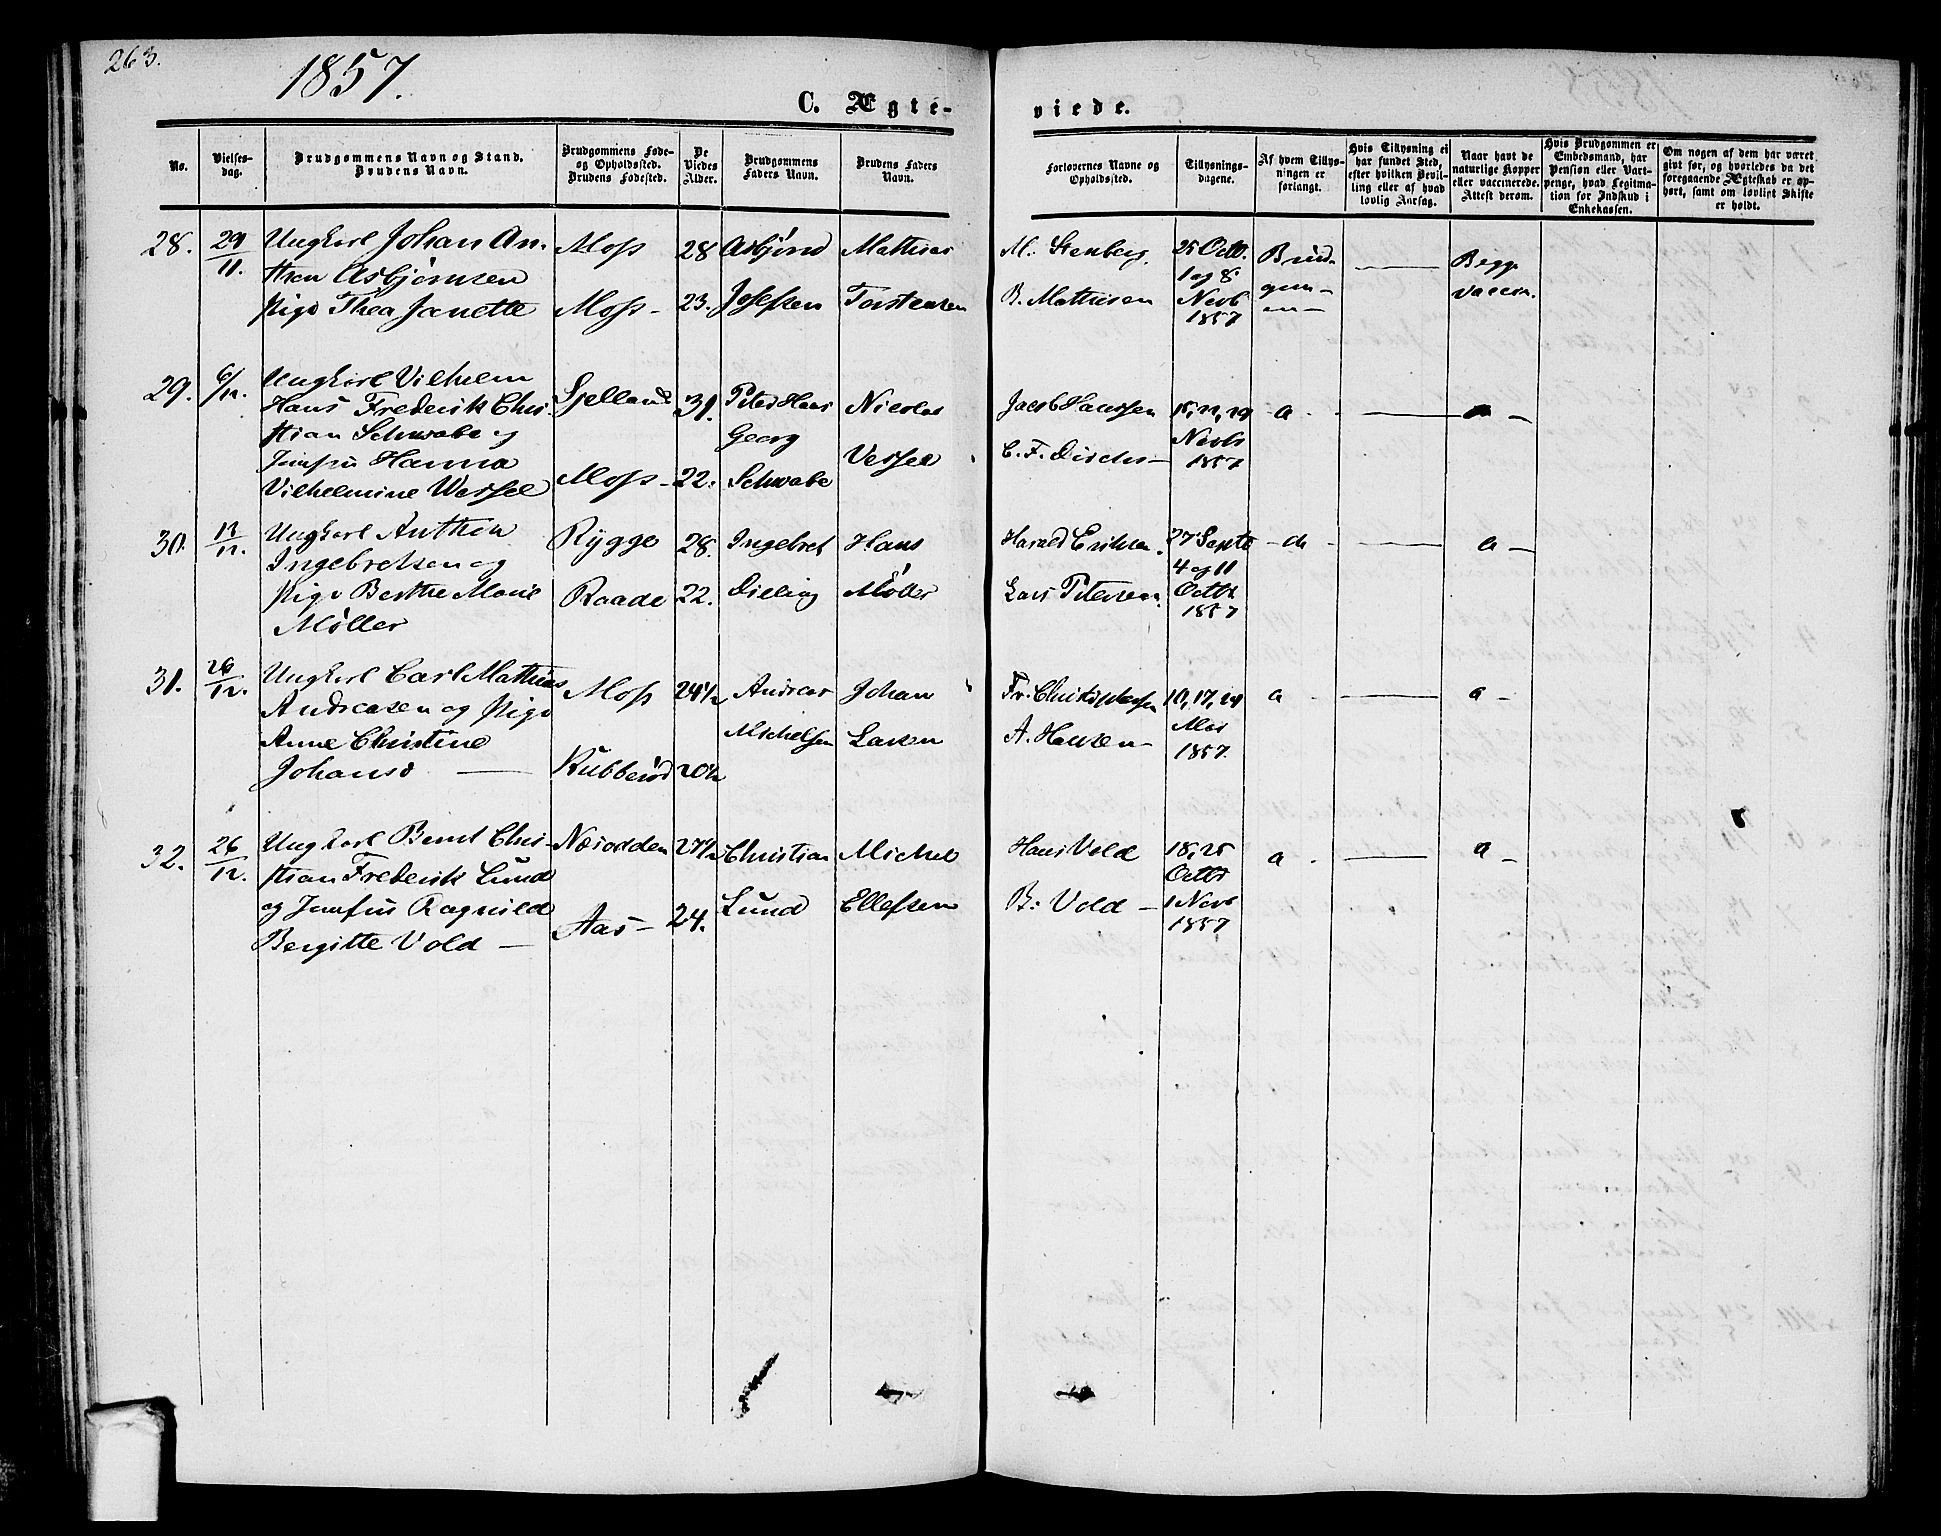 263.
1857.
C. Ægte-
viede.
No.
Vielses-
dag.
Brudgommens Navn og Stand.
Brudens Navn.
Brudgommens Føde-
og Opholdssted.
Brudens Fødested.
De
Viedes
Alder.
Brudgommens
Faders Navn.
Brudens Faders
Navn.
Forlovernes Navne og
Opholdssted.
Tillysnings-
dagene.
Af hvem Tillys-
ningen er
forlangt.
Hvis Tillysning ei
har fundet Sted,
efter hvilken Bevil-
ling eller af hvad
lovlig Aarsag.
Naar havt de
naturlige Kopper
eller vaccinerede.
Attest derom.
Hvis Brudgommen er
Embedsmand, har
Pension eller Vart-
penge, hvad Legitima-
tion for Indskud i
Enkekassen.
Om nogen af dem har været
givt før, og hvorledes da det
foregaaende Ægteskab er op-
hørt, samt om lovligt Skifte
er holdt.
28. 29/11. Ungkarl Johan An- Moss 28 Asbjørn Mathias M. Stenberg. 25 Octb. Brud- — Begge
thon Asbjørnsen 1 og 8 gom- vaccin.
Pige Thea Janette Moss - 23. Josefsen Torstensen B. Mathisen Novb en -
1857
29. 6/12. Ungkarl Vilhelm
Hans Frederik Chri- Sjelland 31. Peter Hans Nicolas Jacob Hanssen 15, 22, 29 - a - — a -
stian Schwabe og Georg Novbr
Jomfru Hanna Vessel C. F. Dirchs - 1857
Vilhelmine Wessel Moss - 22. Schwabe
30. 13/12. Ungkarl Anthon Rygge 28. Ingebret Hans Harald Eriksen. 27 Septb - a - — a -
Ingebretsen og 4 og 11
Pige Berthe Marie Raade 22. Møller Lars Petersen. Octbr
Møller 1857
31. 26/12. Ungkarl Carl Mathias Moss 24½ Andreas Johan Fr. Christophersen 10, 17, 24 a — a -
Andreasen og Pige Mai
Anne Christine Michelsen Larsen A. Hansen - 1857.
Johansd — Kubberød 20½
32. 26/12. Ungkarl Bernt Chri- Næsodden 27½ Christian Michel Hans Vold 18, 25 a - — a -
stian Frederik Lund Octbr
og Jomfru Ragnild Aas - 24. Lund Ellefsen B. Vold - 1 Novb
Bergitte Vold — 1857